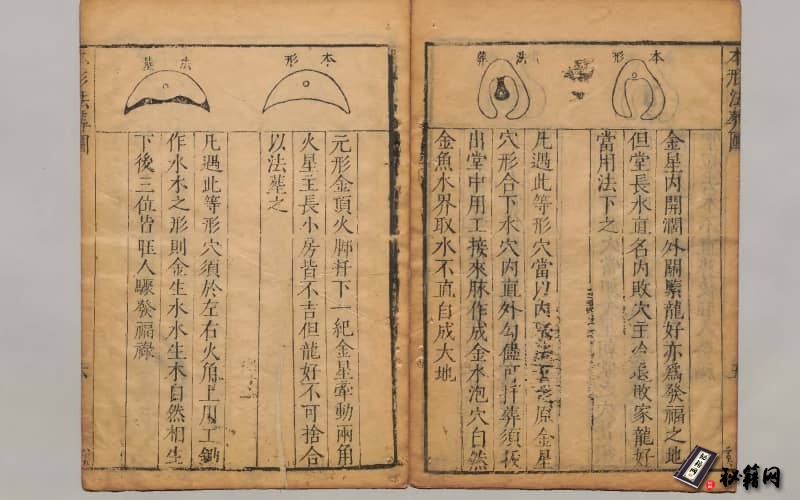 本形
葬法
金星内開濶外關緊龍好亦爲發福之地
但堂長水直名内敗穴主退敗家龍好
當用法下之
凡遇此等形穴當以内法之原金星
穴形合下水穴内直外勾儘可扦葬須扳
出堂中用工接來脉作成金水泡穴自然
金魚水界取水不直自成大地
本形法葬圖
本形
法葬
元形金頂火脚扦下一紀金星牽動兩角
火星主長小房皆不吉但龍好不可捨合
以法葬之
凡遇此等形穴須於左右火角上用工鋤
作水木之形則金生水水生木自然相生
下後三位皆旺人驟發福祿
形法葬圖
秘籍网